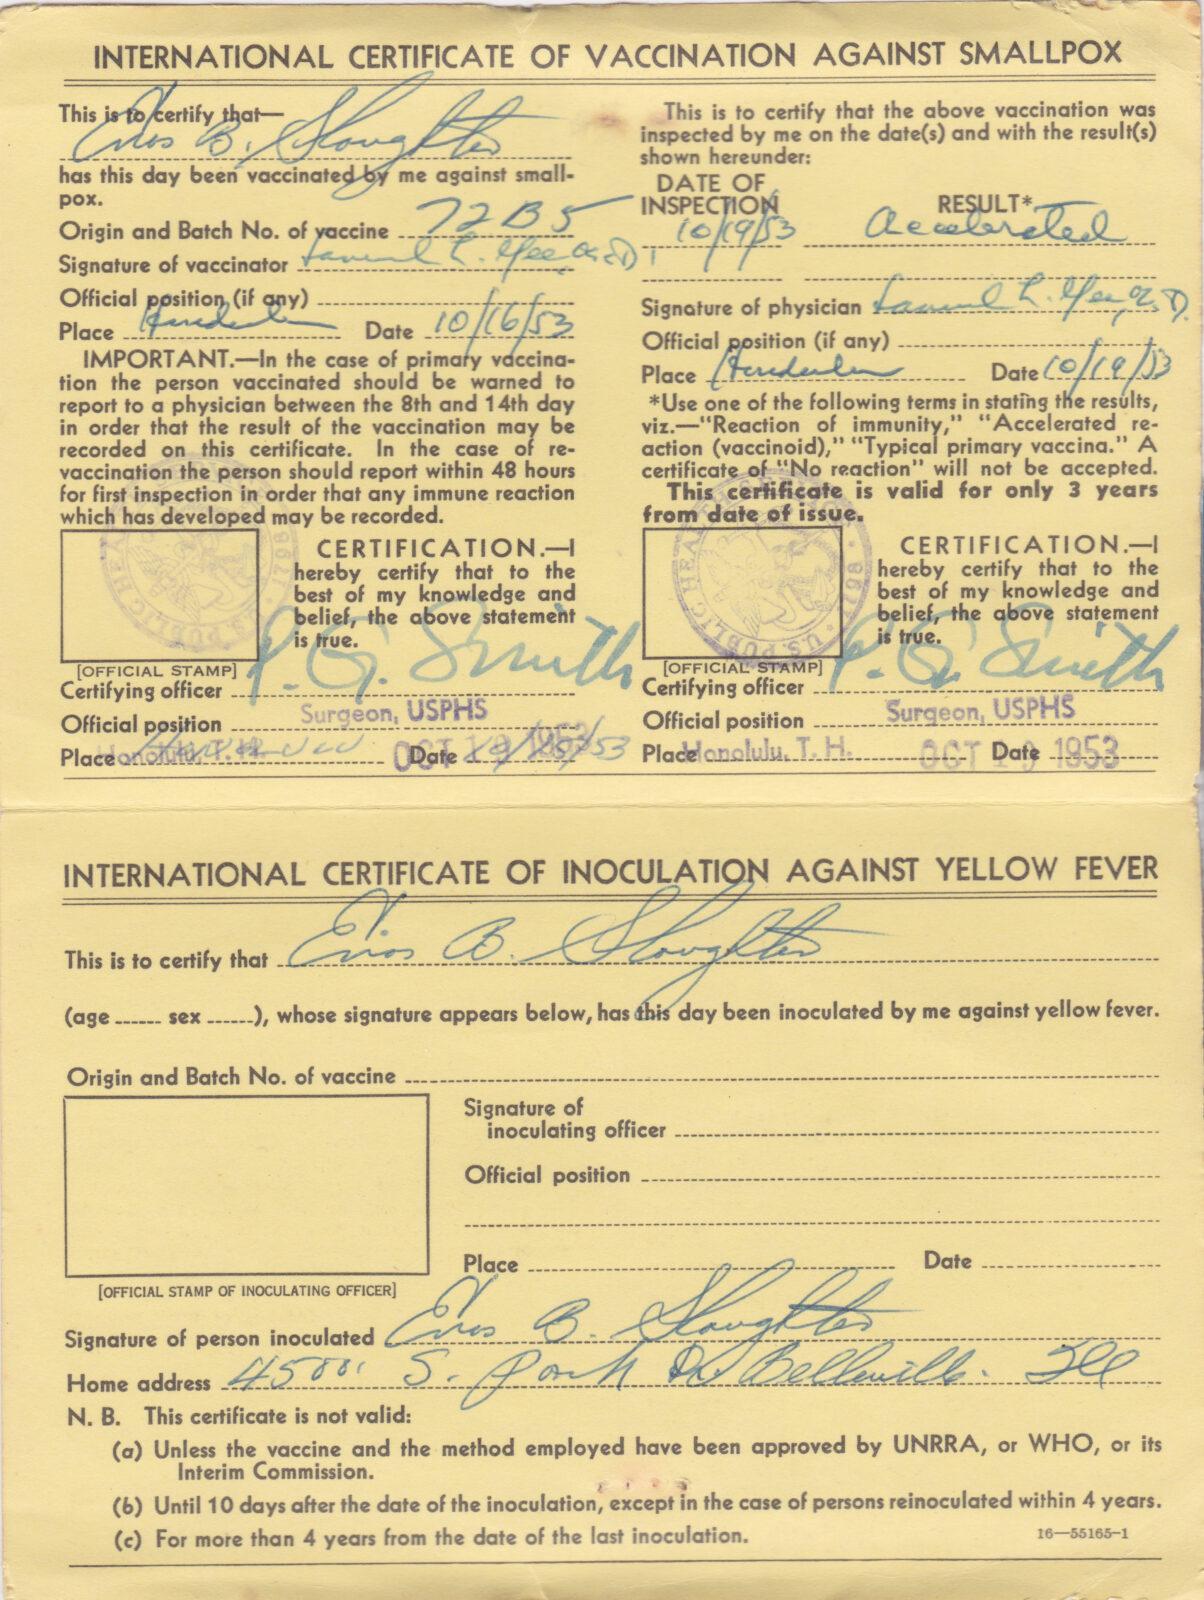 INTERNATIONAL CERTIFICATE OF VACCINATION AGAINST SMALLPOX
This is to certify that—
Enos B. Slaughter
has this day been vaccinated by me against small-
pox.
Origin and Batch No. of vaccine 72B5
Signature of vaccinator Samuel L. Yee, M.D.
Official position (if any)
Place Honolulu Date 10/16/53
IMPORTANT.—In the case of primary vaccina-
tion the person vaccinated should be warned to
report to a physician between the 8th and 14th day
in order that the result of the vaccination may be
recorded on this certificate. In the case of re-
vaccination the person should report within 48 hours
for first inspection in order that any immune reaction
which has developed may be recorded.
U.S. PUBLIC HEALTH SERVICE 1798
CERTIFICATION.—I
hereby certify that to the
best of my knowledge and
belief, the above statement
is true.
[OFFICIAL STAMP]
Certifying officer P. G. Smith
Official position Surgeon, USPHS
Place Honolulu, T. H. Date OCT 19 1953
This is to certify that the above vaccination was
inspected by me on the date(s) and with the result(s)
shown hereunder:
DATE OF
INSPECTION RESULT*
10/19/53 Accelerated
Signature of physician Samuel L. Yee, M.D.
Official position (if any)
Place Honolulu Date 10/19/53
*Use one of the following terms in stating the results,
viz.—"Reaction of immunity," "Accelerated re-
action (vaccinoid)," "Typical primary vaccina." A
certificate of "No reaction" will not be accepted.
This certificate is valid for only 3 years
from date of issue.
U.S. PUBLIC HEALTH SERVICE 1798
CERTIFICATION.—I
hereby certify that to the
best of my knowledge and
belief, the above statement
is true.
[OFFICIAL STAMP]
Certifying officer P. G. Smith
Official position Surgeon, USPHS
Place Honolulu, T. H. Date OCT 19 1953
INTERNATIONAL CERTIFICATE OF INOCULATION AGAINST YELLOW FEVER
This is to certify that Enos B. Slaughter
(age sex ), whose signature appears below, has this day been inoculated by me against yellow fever.
Origin and Batch No. of vaccine
Signature of
inoculating officer
Official position
Place Date
[OFFICIAL STAMP OF INOCULATING OFFICER]
Signature of person inoculated Enos B. Slaughter
Home address 4500 S. Park Dr. Belleville. Ill
N. B. This certificate is not valid:
(a) Unless the vaccine and the method employed have been approved by UNRRA, or WHO, or its
Interim Commission.
(b) Until 10 days after the date of the inoculation, except in the case of persons reinoculated within 4 years.
(c) For more than 4 years from the date of the last inoculation.
16—55165-1